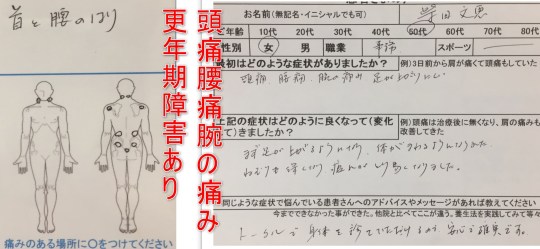 首と腰のはり
痛みのある場所に○をつけてください
頭痛腰痛腕の痛み
更年期障害あり
お名前(無記名・イニシャルでも可)
年齢 10代 20代 30代 40代 50代 60代 70代 80代
性別 女 男 職業 スポーツ
最初はどのような症状がありましたか? 例)3日前から肩が痛くて頭痛もしていた
頭痛 腰痛 腕の痛み 足が上がりにくい
上記の症状はどのように良くなって(変化
てきましたか? 例)頭痛は治療後に無くなり、肩の痛みも
改善してきた
同じような症状で悩んでいる患者さんへのアドバイスやメッセージがあれば教えてください
今までできなかった事ができた。他院と比べてここが違う。養生法を実践してみて等々
トータルで身体を診ていただけるので